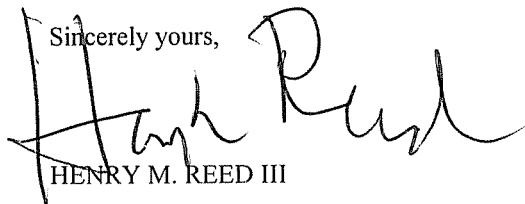 Sincerely yours,
Hank Reed
HENRY M. REED III